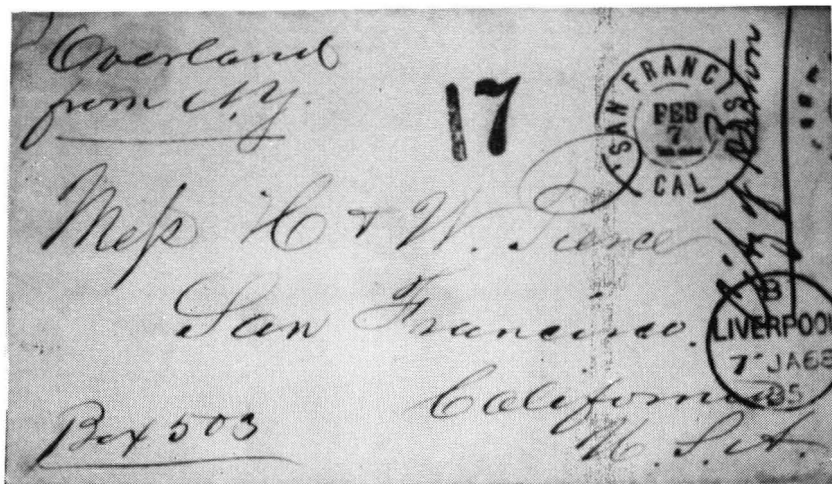 Overland
from N.Y.
17
SAN FRANCIS
FEB
7
CAL
Mess H & W. Pierce
San Francisco.
California
U. S. A.
Box 503
B
LIVERPOOL
7 JA68
85